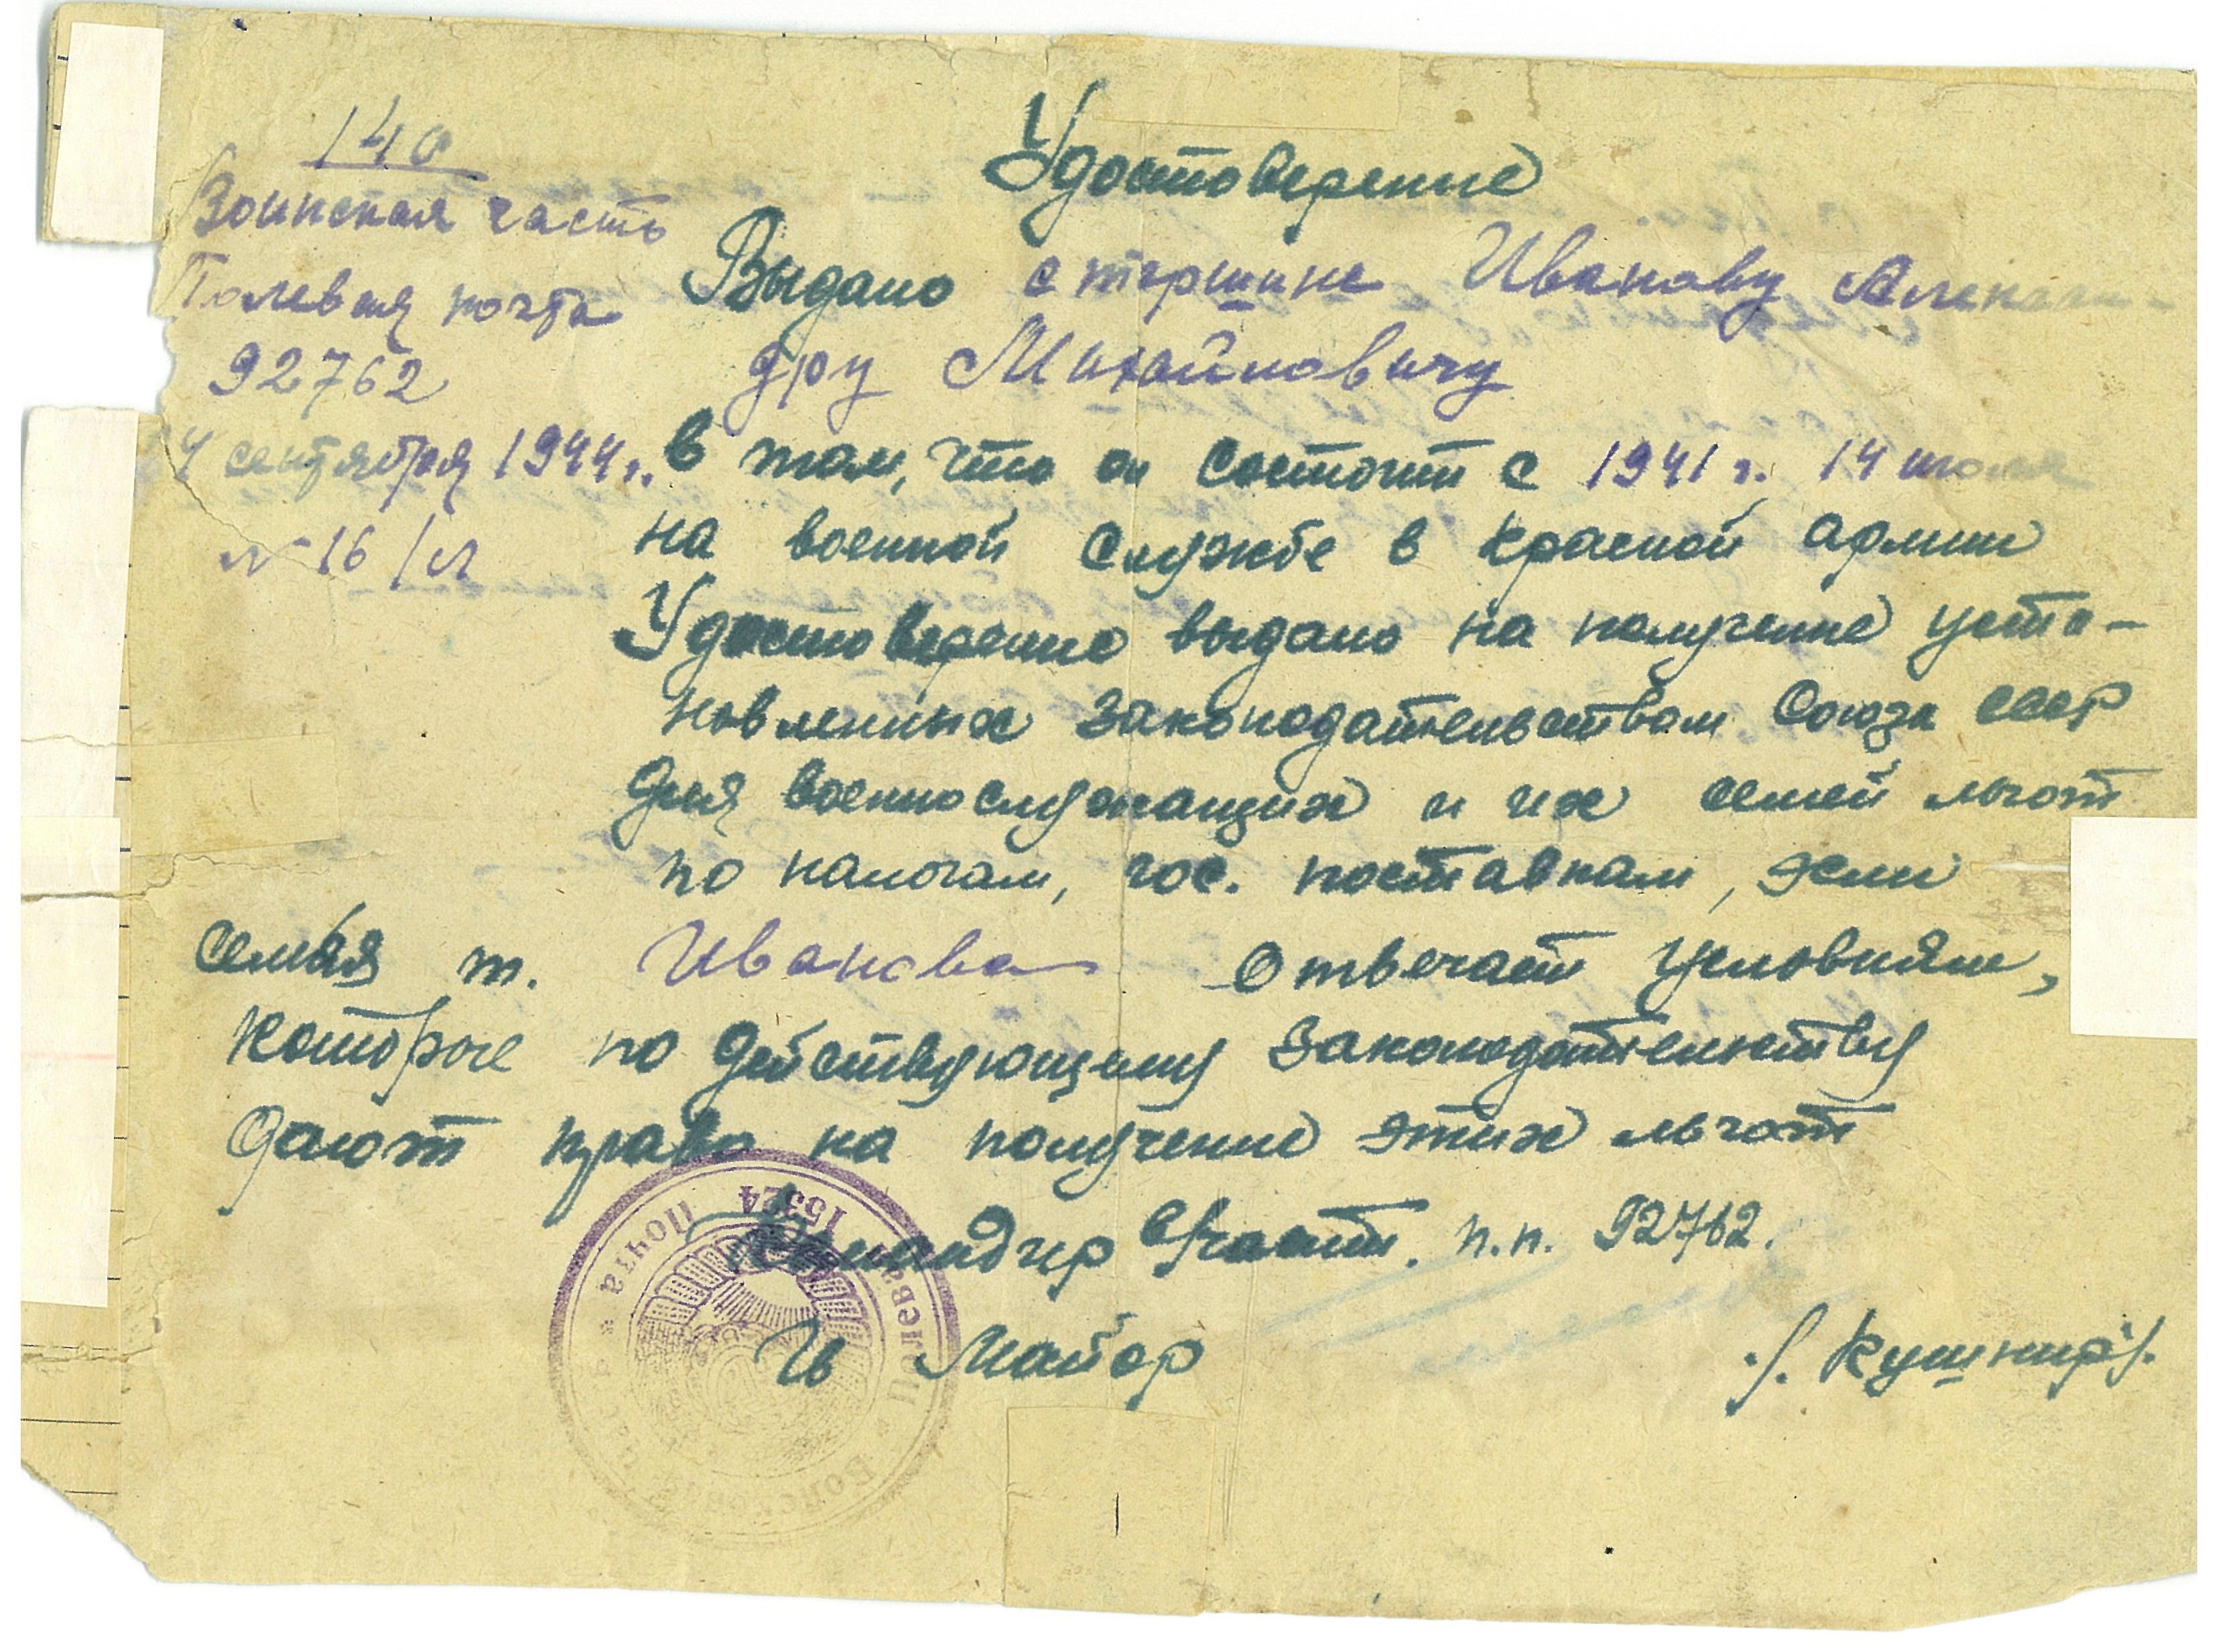 140
Воинская часть
Полевая почта
92762
4 сентября 1944 г.
№ 16/л
Удостоверение
Выдано старшине Иванову Алексан-
дру Михайловичу
в том, что он состоит с 1941 г. 14 июля
на военной службе в Красной армии
Удостоверение выдано на получение уста-
новленных законодательством Союза ССР
для военнослужащих и их семей льгот
по налогам, гос. поставкам, если
семья т. Иванова отвечает условиям,
которые по действующему законодательству
дают право на получение этих льгот
Командир части п.п. 92762.
Майор /. Кушнир /.
Полевая Почта
15324